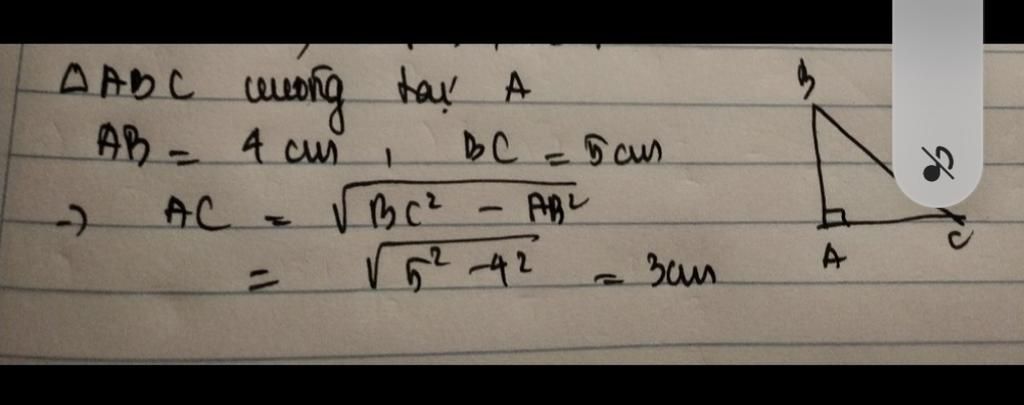 ΔABC vuông tại A
AB = 4 cm , BC = 5 cm
→ AC = √(BC² - AB²)
= √(5² - 4²) = 3cm
B
A
C